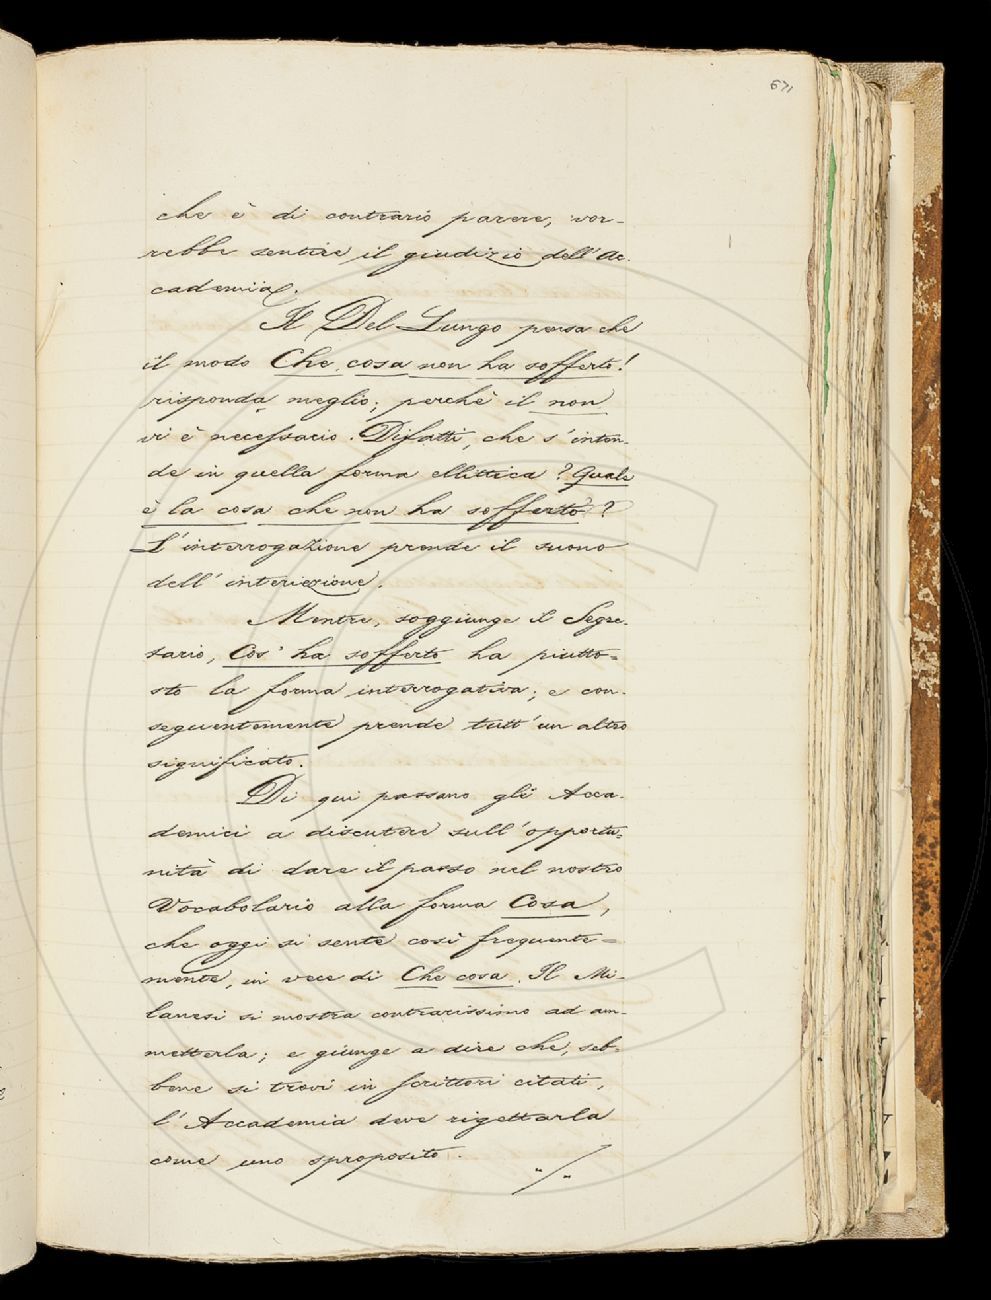 671
che è di contrario parere, vor-
rebbe sentire il giudizio dell'Ac-
cademia.
Il Del Lungo pensa che
il modo Che cosa non ha sofferto!
risponda meglio; perchè il non
vi è necessario. Difatti, che s'inten-
de in quella forma ellittica? Quale
è la cosa che non ha sofferto?
L'interrogazione prende il suono
dell'interiezione.
Mentre, soggiunge il Segre-
tario, Cos'ha sofferto ha piutto=
sto la forma interrogativa; e con-
seguentemente prende tutt'un altro
significato.
Di qui passano gli Acca-
demici a discutere sull'opportu=
nità di dare il passo nel nostro
Vocabolario alla forma Cosa,
che oggi si sente così frequente=
mente, in vece di Che cosa. Il Mi-
lanesi si mostra contrarissimo ad am-
metterla; e giunge a dire che, seb-
bene si trovi in scrittori citati,
l'Accademia deve rigettarla
come uno sproposito.
./.